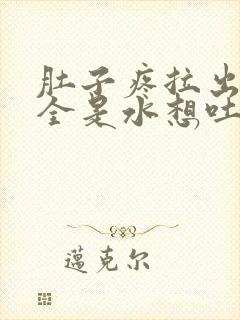 肚子疼拉出
全是水想吐
邁克尔